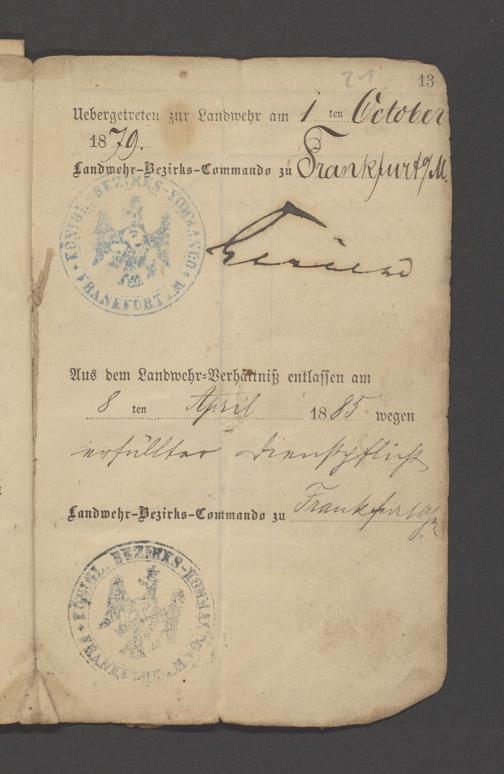 21
13
Uebergetreten zur Landwehr am 1 ten October
1879.
Landwehr-Bezirks-Commando zu Frankfurt a/M.
KÖNIGL. BEZIRKS-KOMMANDO
FRANKFURT A.M.
Aus dem Landwehr-Verhältniß entlassen am
8 ten April 1885 wegen
erfüllter Dienstpflicht
Landwehr-Bezirks-Commando zu Frankfurt a/M
KÖNIGL. BEZIRKS-KOMMANDO
FRANKFURT A.M.